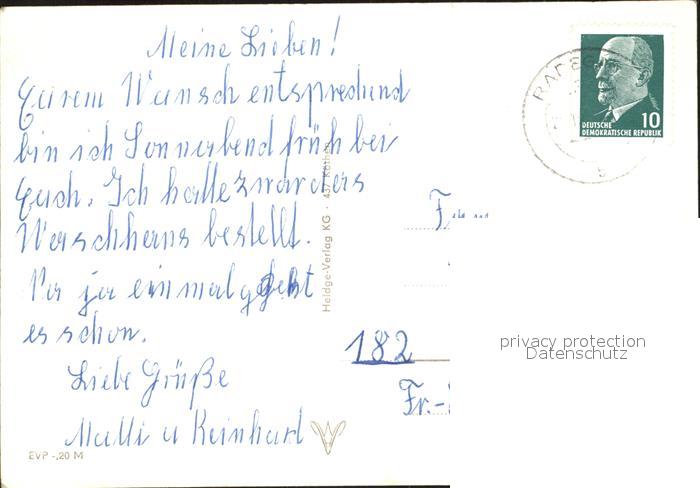 Meine Lieben!
Eurem Wunsch entsprechend
bin ich Sonnabend früh bei
Euch. Ich hatte zwar
bestellt.
ja einmal geht
es schon.
Liebe Grüße
Mutti u Reinhard
EVP -,20 M
Heldge-Verlag KG · 437 Köthen
DEUTSCHE
DEMOKRATISCHE REPUBLIK
10
b
182
Fr.-
privacy protection
Datenschutz